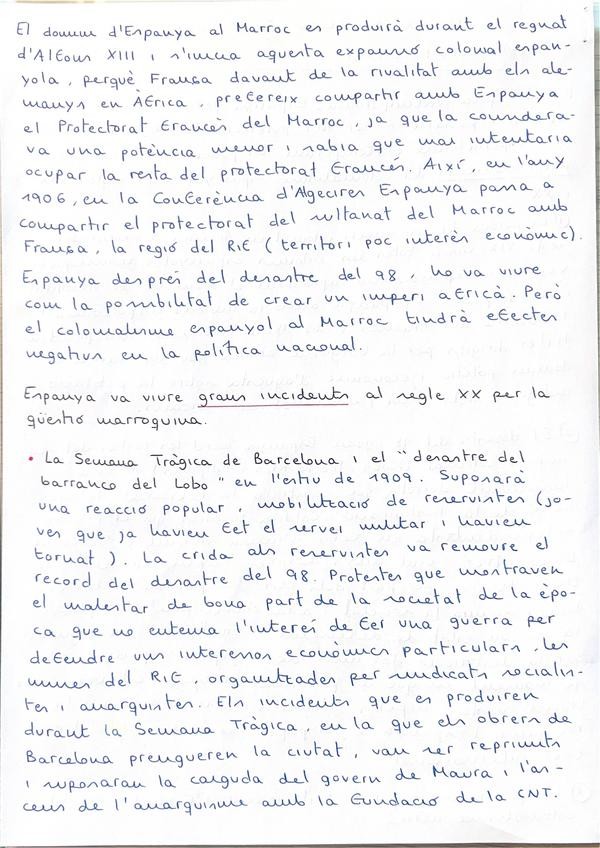 El domini d'Espanya al Marroc es produirà durant el regnat
d'Alfons XIII i s'inicia aquesta expansió colonial espan-
yola, perquè França davant de la rivalitat amb els ale-
manys en Àfrica, prefereix compartir amb Espanya
el Protectorat francès del Marroc, ja que la considera-
va una potència menor i sabia que mai intentaria
ocupar la resta del protectorat francés. Així, en l'any
1906, en la Conferència d'Algecires Espanya passa a
compartir el protectorat del sultanat del Marroc amb
França, la regió del Rif (territori poc interès econòmic).
Espanya després del desastre del 98, ho va viure
com la possibilitat de crear un imperi africà. Però
el colonialisme espanyol al Marroc tindrà efectes
negatius en la política nacional.
Espanya va viure grans incidents al segle XX per la
qüestió marroquina.
• La Semana Tràgica de Barcelona i el "desastre del
barranco del Lobo" en l'estiu de 1909. Suposarà
una reacció popular, mobilització de reservistes (jo-
ves que ja havien fet el servei militar i havien
tornat). La crida als reservistes va remoure el
record del desastre del 98. Protestes que mostraven
el malestar de bona part de la societat de la èpo-
ca que no entenia l'interés de fer una guerra per
defendre uns interessos econòmics particulars, les
mines del Rif, organitzades per sindicats socialis-
tes i anarquistes. Els incidents que es produiren
durant la Semana Tràgica, en la que els obrers de
Barcelona prengueren la ciutat, van ser reprimits
i suposaran la caiguda del govern de Maura i l'as-
cens de l'anarquisme amb la fundació de la CNT.